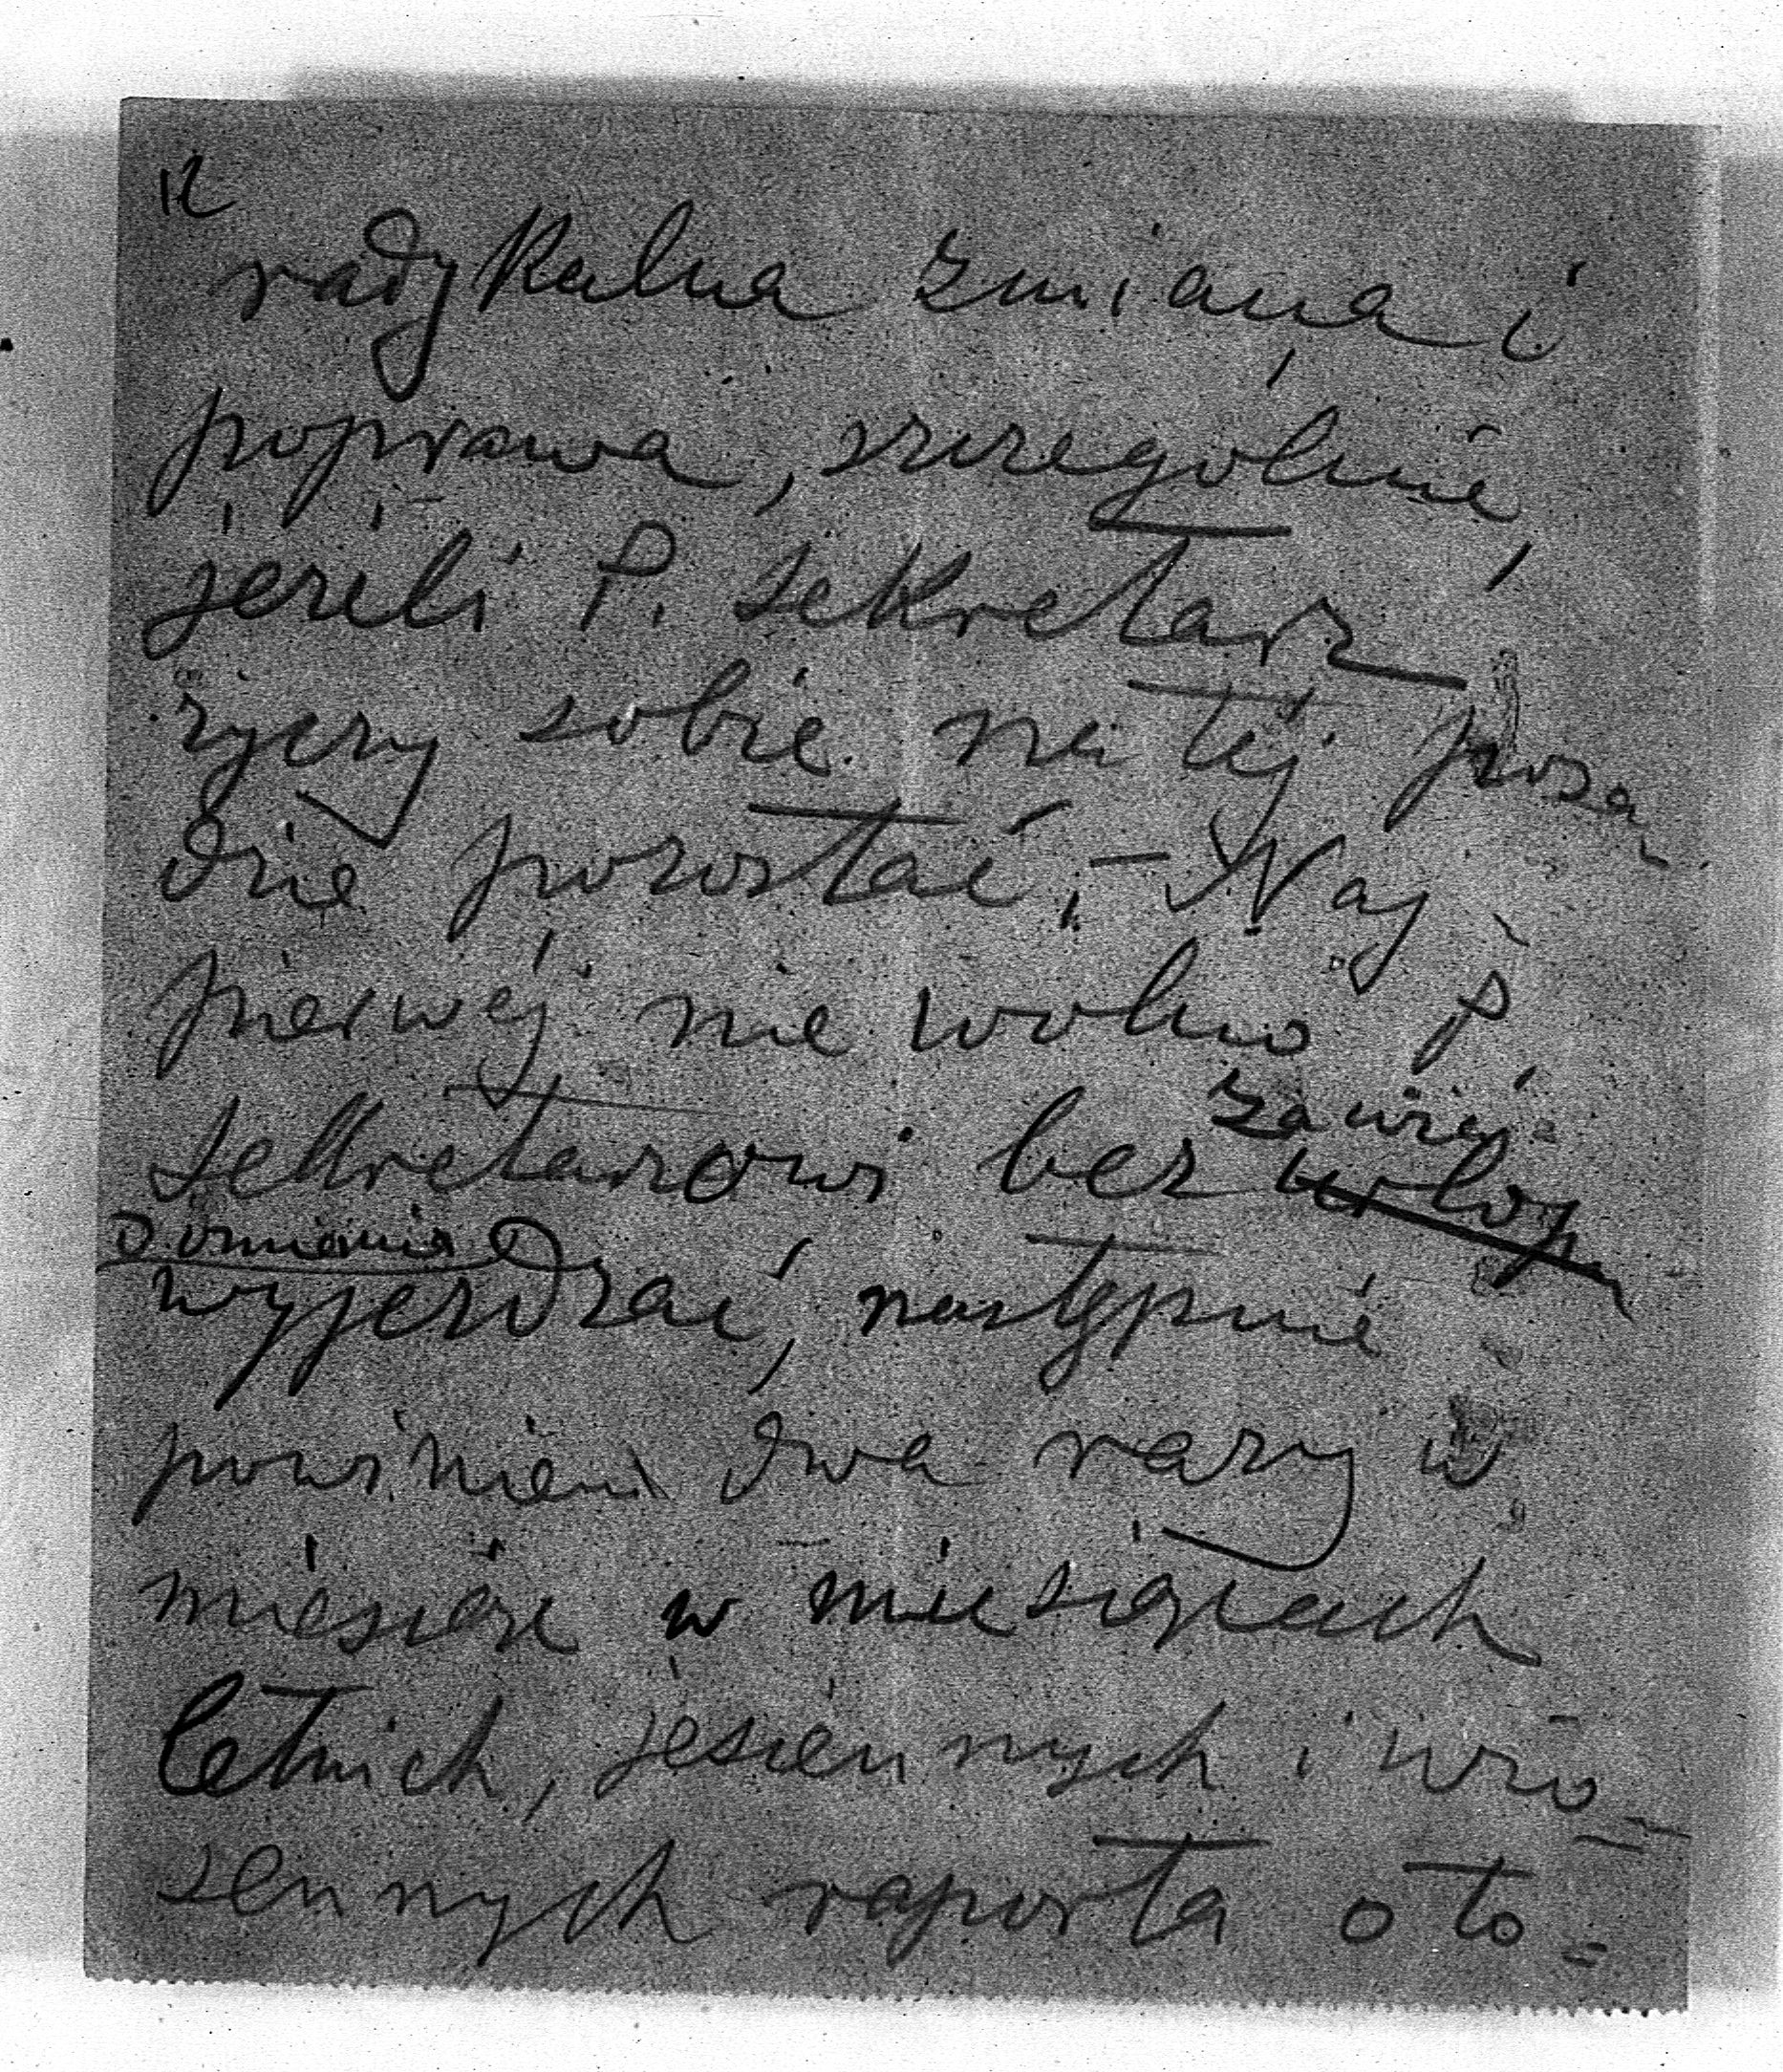 12
radykalna zmiana i
poprawa, szczególnie,
jeżeli P. sekretarz
życzy sobie na tej posa-
dzie pozostać, – Naj-
pierwéj nie wolno P.
zawia-
sekretarzowi bez urlopu
domienia
wyjezdzać, następnie
powinien dwa razy w
miesiącu w miesiącach
letnich, jesiennych i wio-
sennych raporta o to=